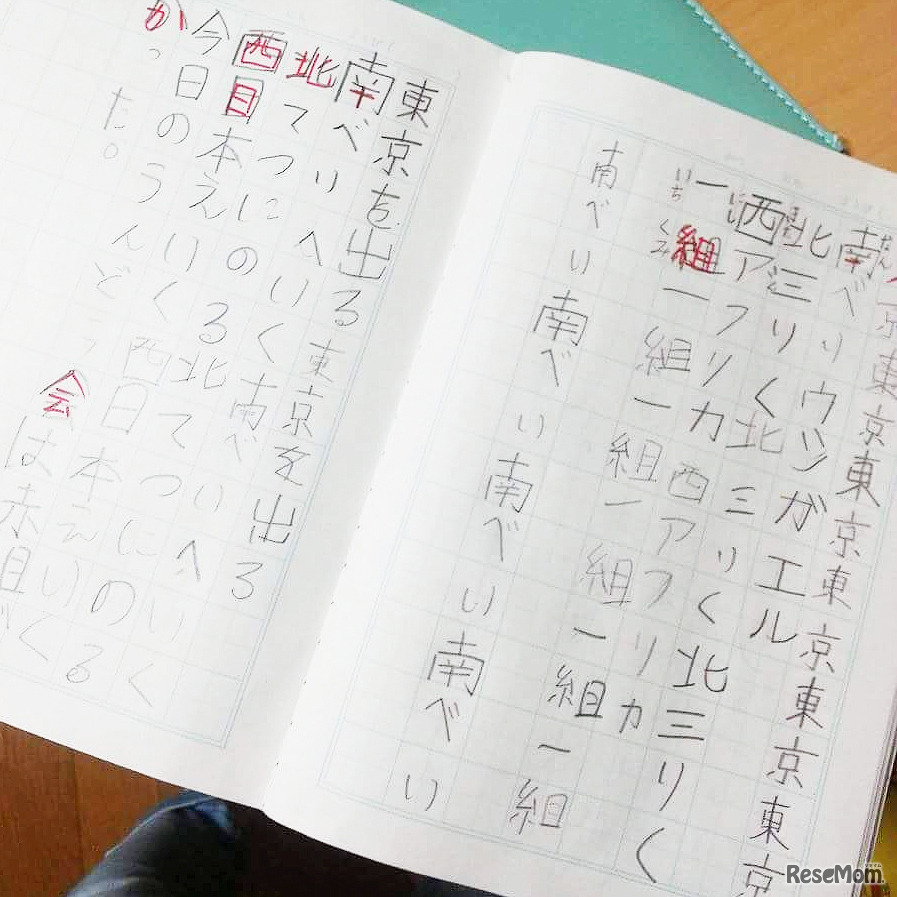 京東京東京東京東京東京
なん
南べりウツがエル
北三りく北三りく北三りく
にし
西アフリカ西アフリカ
いちくみ
一組一組一組一組一組一組
南べい南べい南べい南べい
東京を出る東京を出る
南べいへいく南べいへいく
北てつにのる北てつにのる
西日本えいく西日本えいく
今日のうんどう会は赤組が
かった。
ReseMom